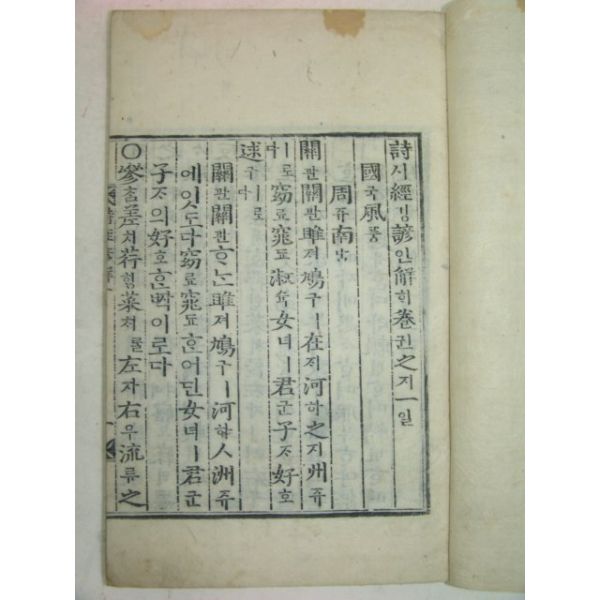 詩시經경諺언解ᄒᆡ卷권之지一일
國국風풍
周쥬南남
關관關관雎져鳩구ㅣ在ᄌᆡ河하之지洲쥬
ㅣ로다窈요窕됴淑슉女녀ㅣ君군子ᄌᆞ好호
逑구ㅣ로다
關관關관ᄒᆞᄂᆞᆫ雎져鳩구ㅣ河하人洲쥬
에잇도다窈요窕됴ᄒᆞᆫ어딘女녀ㅣ君군
子ᄌᆞ의好호ᄒᆞᆫᄧᅡᆨ이로다
〇參ᄎᆞᆷ差치荇ᄒᆡᆼ菜ᄎᆡ를左자右우流류之